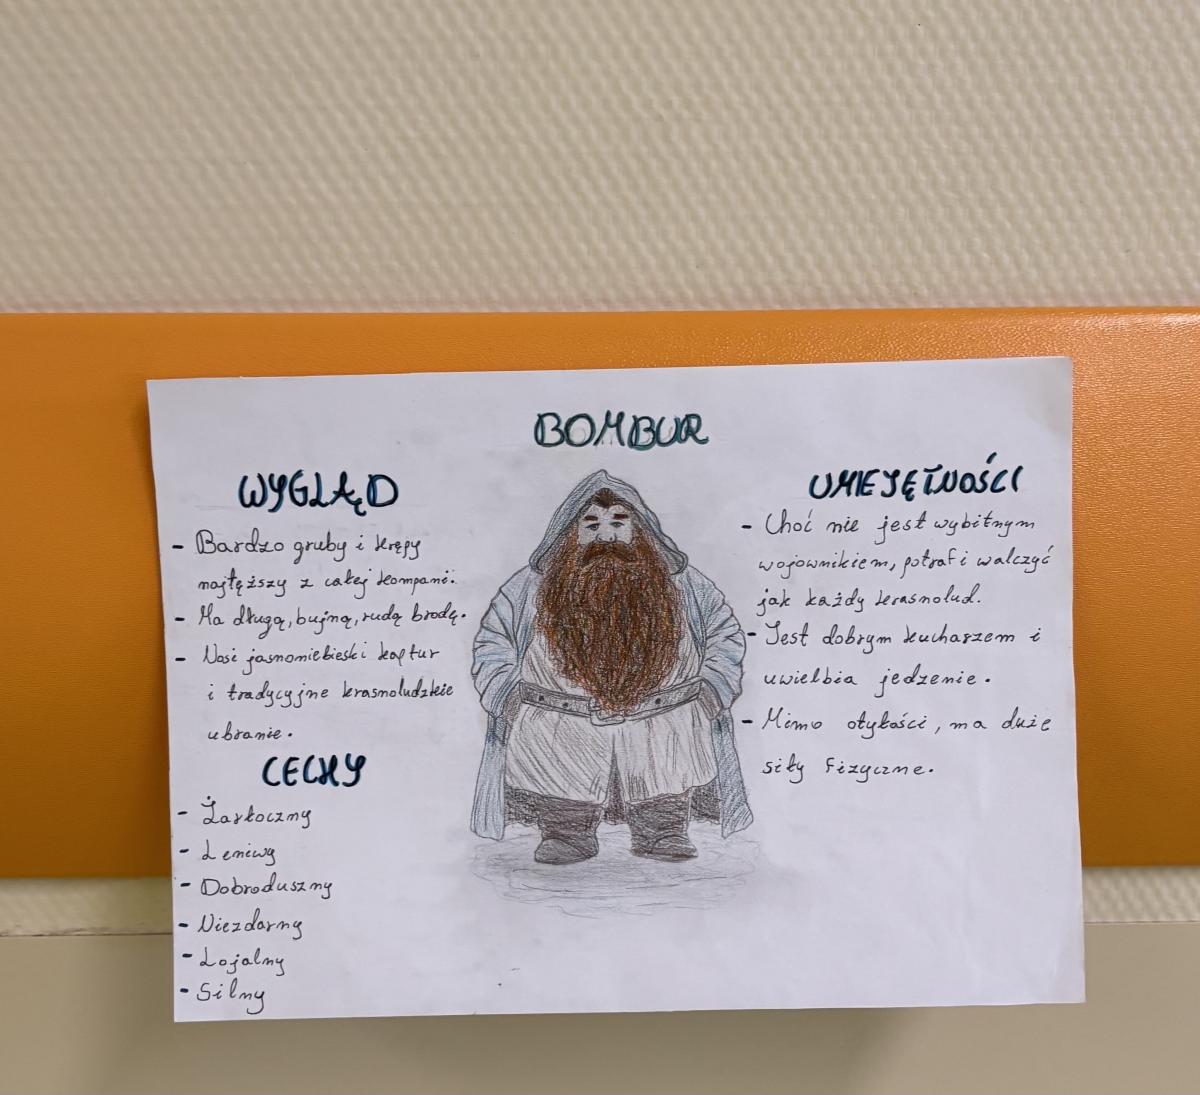 BOMBUR
WYGLĄD
- Bardzo gruby i krępy
najtęższy z całej kompani.
- Ma długą, bujną, rudą brodę.
- Nosi jasnoniebieski kaptur
i tradycyjne krasnoludzkie
ubranie.
CECHY
- Żarłoczny
- Leniwy
- Dobroduszny
- Niezdarny
- Lojalny
- Silny
UMIEJĘTNOŚCI
- Choć nie jest wybitnym
wojownikiem, potrafi walczyć
jak każdy krasnolud.
- Jest dobrym kucharzem i
uwielbia jedzenie.
- Mimo otyłości, ma duże
siły fizyczne.